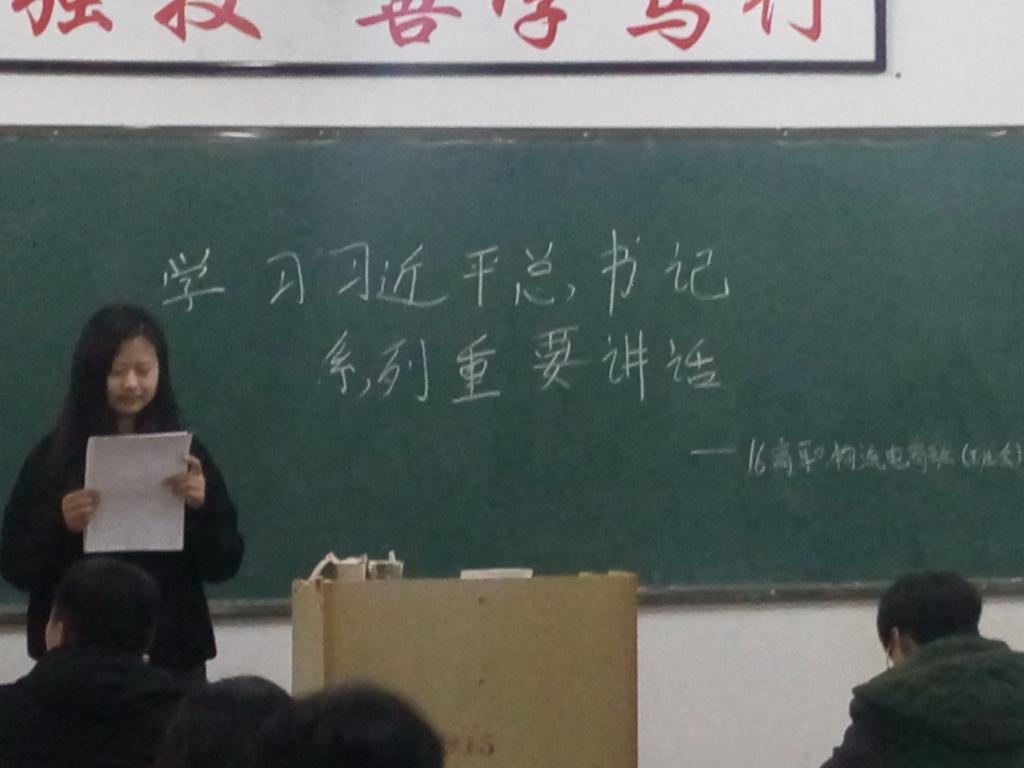 强技 善学笃行
学习习近平总书记
系列重要讲话
—16高职物流电商班(
915